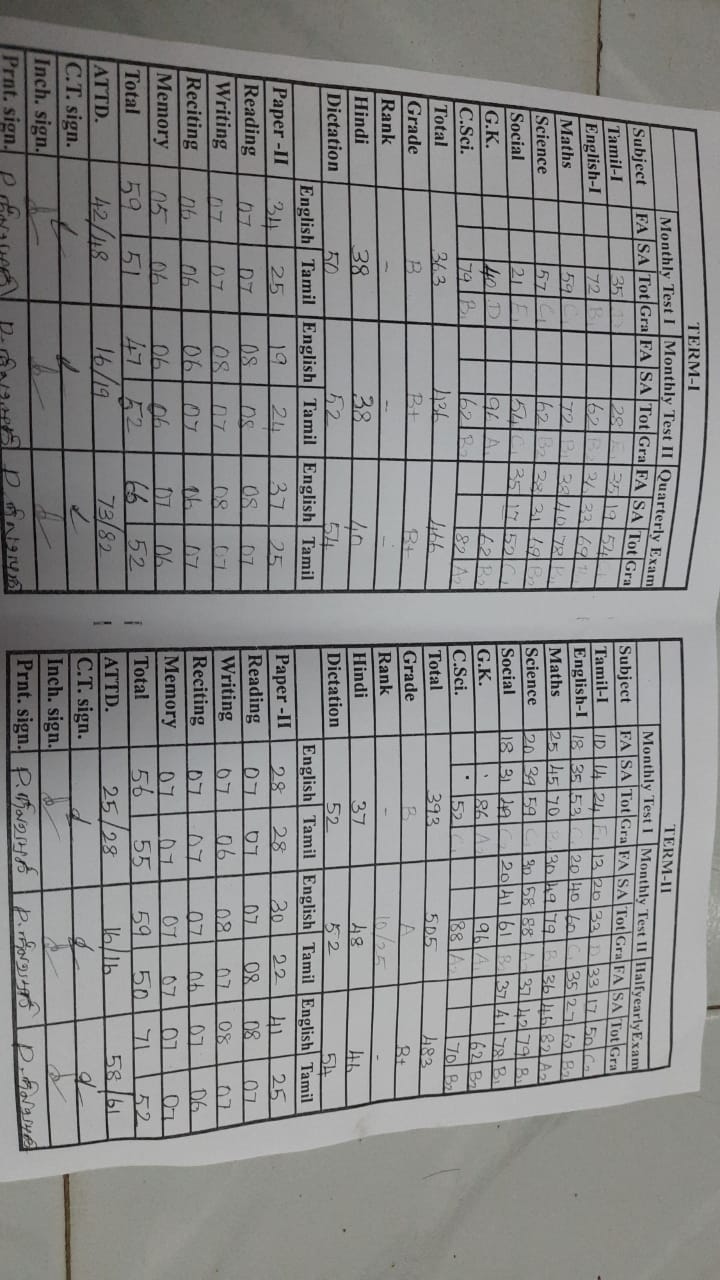 TERM-I
Monthly Test I Monthly Test II Quarterly Exam
Subject FA SA Tot Gra FA SA Tot Gra FA SA Tot Gra
Tamil-I 35 D 28 E 35 19 54 C
English-I 72 B1 62 B2 36 33 69 B
Maths 59 C1 72 B1 38 40 78 B1
Science 57 C1 62 B2 38 31 69 B2
Social 21 E1 54 C1 35 17 52 C1
G.K. 40 D 96 A1 62 B2
C.Sci. 79 B1 62 B2 82 A2
Total 363 436 466
Grade B B+ B+
Rank - - -
Hindi 38 38 40
Dictation 50 52 54
English Tamil English Tamil English Tamil
Paper -II 34 25 19 24 37 25
Reading 07 07 08 08 08 07
Writing 07 07 08 07 08 07
Reciting 06 06 06 07 06 07
Memory 05 06 06 06 07 06
Total 59 51 47 52 66 52
ATTD. 42/48 16/19 73/82
C.T. sign.
Inch. sign.
Prnt. sign.
TERM-II
Monthly Test I Monthly Test II Halfyearly Exam
Subject FA SA Tot Gra FA SA Tot Gra FA SA Tot Gra
Tamil-I 10 14 24 E 13 20 33 D 33 17 50 C2
English-I 18 35 53 C 20 40 60 C 35 27 62 B2
Maths 25 45 70 B 30 49 79 B 36 46 82 A2
Science 20 39 59 C 30 58 88 A 37 42 79 B1
Social 18 31 49 C 20 41 61 B 37 41 78 B1
G.K. 86 A 96 A1 62 B2
C.Sci. 52 C 88 A2 70 B2
Total 393 505 483
Grade B A B+
Rank - 10/25 -
Hindi 37 48 46
Dictation 52 52 54
English Tamil English Tamil English Tamil
Paper -II 28 28 30 22 41 25
Reading 07 07 07 08 08 07
Writing 07 06 08 07 08 07
Reciting 07 07 07 06 07 06
Memory 07 07 07 07 07 07
Total 56 55 59 50 71 52
ATTD. 25/28 16/16 58/61
C.T. sign.
Inch. sign.
Prnt. sign.